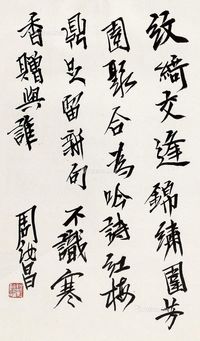 紋綺交逢錦繡圍芳
園聚合為吟詩紅梅
鼎足留新句不識寒
香贈與誰
周汝昌